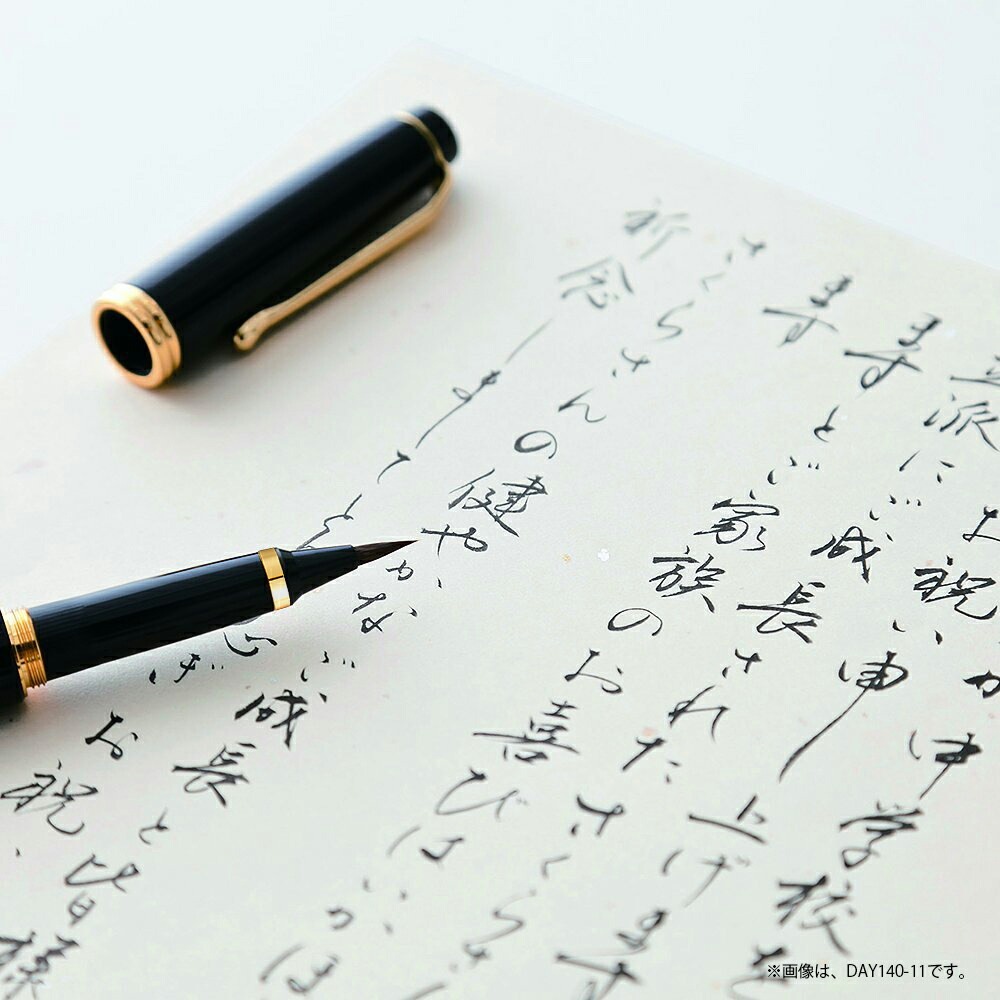 か中学校を
お祝い申し上げます
立派にご成長されたさくらさ
ますとご家族のお喜びはいかほ
ます
さくらさんの健やかなご成長と皆様
祈念しまして ぎお祝
※画像は、DAY140-11です。